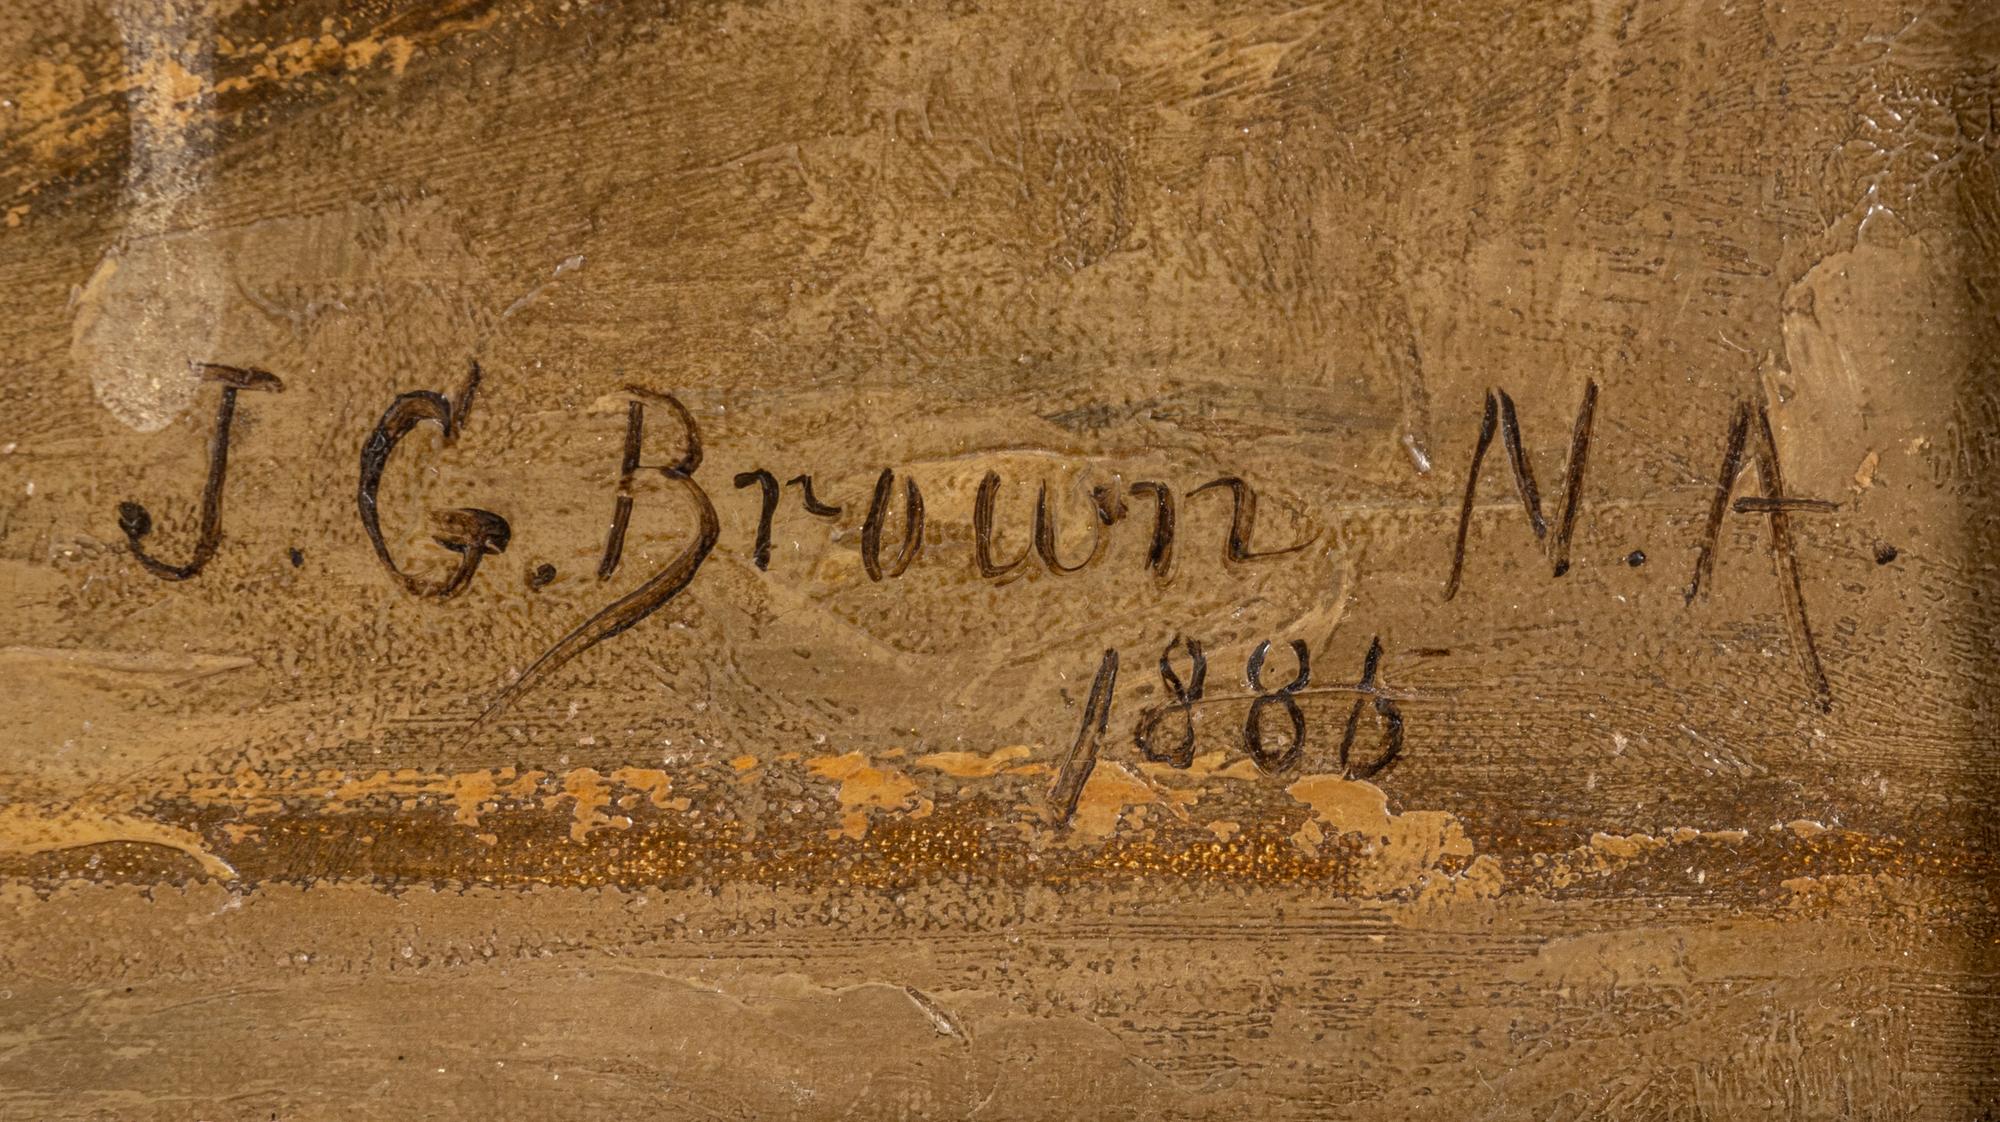 J. G. Brown N. A.
1886